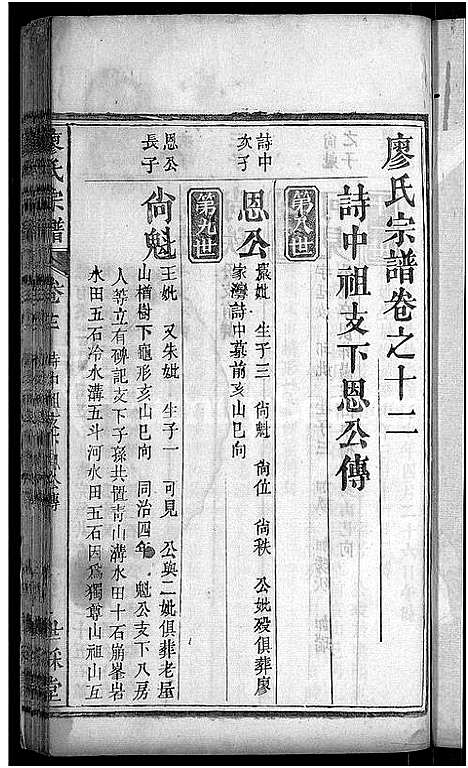 廖氏宗譜卷之十二
詩中祖支下恩公傳
第八世
詩中
次子
恩公
嚴妣 生子三 尙魁 尙位 尙秩 公妣殁俱葬廖
家灣詩中墓前亥山巳向
第九世
恩公
長子
尙魁
王妣 又朱妣 生子一 可見 公與二妣俱葬老屋
山檀樹下龜形亥山巳向 同治四年 魁公支下八房
人等立有碑記支下子孫共置靑山溝水田十石崩峯岩
水田五石冷水溝五斗河水田五石因爲獨尊山祖山互
廖氏宗譜
卷十二
詩中祖支下恩公傳
世綵堂